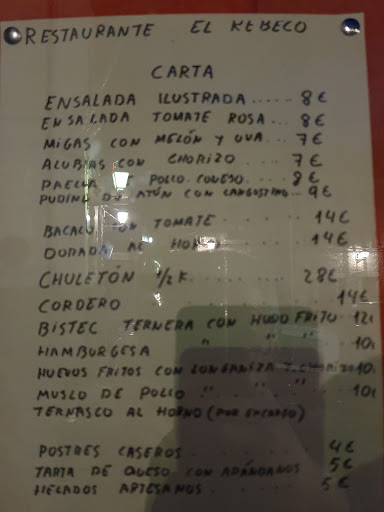 RESTAURANTE EL KEBECO
CARTA
ENSALADA ILUSTRADA ..... 8 €
ENSALADA TOMATE ROSA ... 8 €
MIGAS CON MELÓN Y UVA ... 7 €
ALUBIAS CON CHORIZO ... 7 €
PAELLA DE POLLO CONEJO ... 8 €
PUDING DE ATÚN CON LANGOSTINO .. 9€
BACALAO CON TOMATE ..... 14 €
DORADA AL HORNO ..... 14 €
CHULETÓN 1/2 K. ..... 28€
CORDERO ..... 14€
BISTEC TERNERA CON HUEVO FRITO 12
HAMBURGESA " " ... 10
HUEVOS FRITOS CON LONGANIZA 10
MUSLO DE POLLO " " " 10
TERNASCO AL HORNO (POR ENCARGO)
POSTRES CASEROS ..... 4€
TARTA DE QUESO CON ARÁNDANOS 5€
HELADOS ARTESANOS ..... 5€